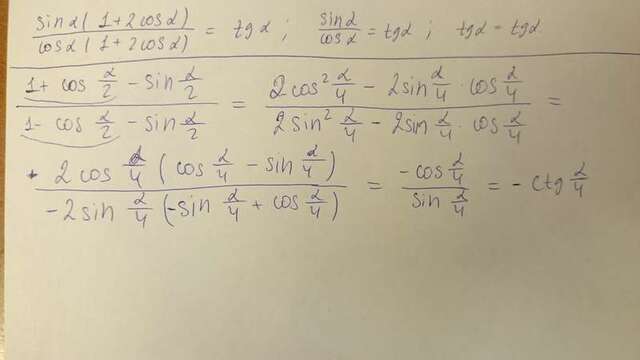 sinα(1+2cosα)/cosα(1+2cosα) = tgα ; sinα/cosα = tgα ; tgα = tgα
(1+cos α/2 - sin α/2)/(1-cos α/2 - sin α/2) = (2cos² α/4 - 2sin α/4 · cos α/4)/(2sin² α/4 - 2sin α/4 · cos α/4) =
(2cos α/4 (cos α/4 - sin α/4))/(-2sin α/4 (-sin α/4 + cos α/4)) = (-cos α/4)/(sin α/4) = -ctg α/4